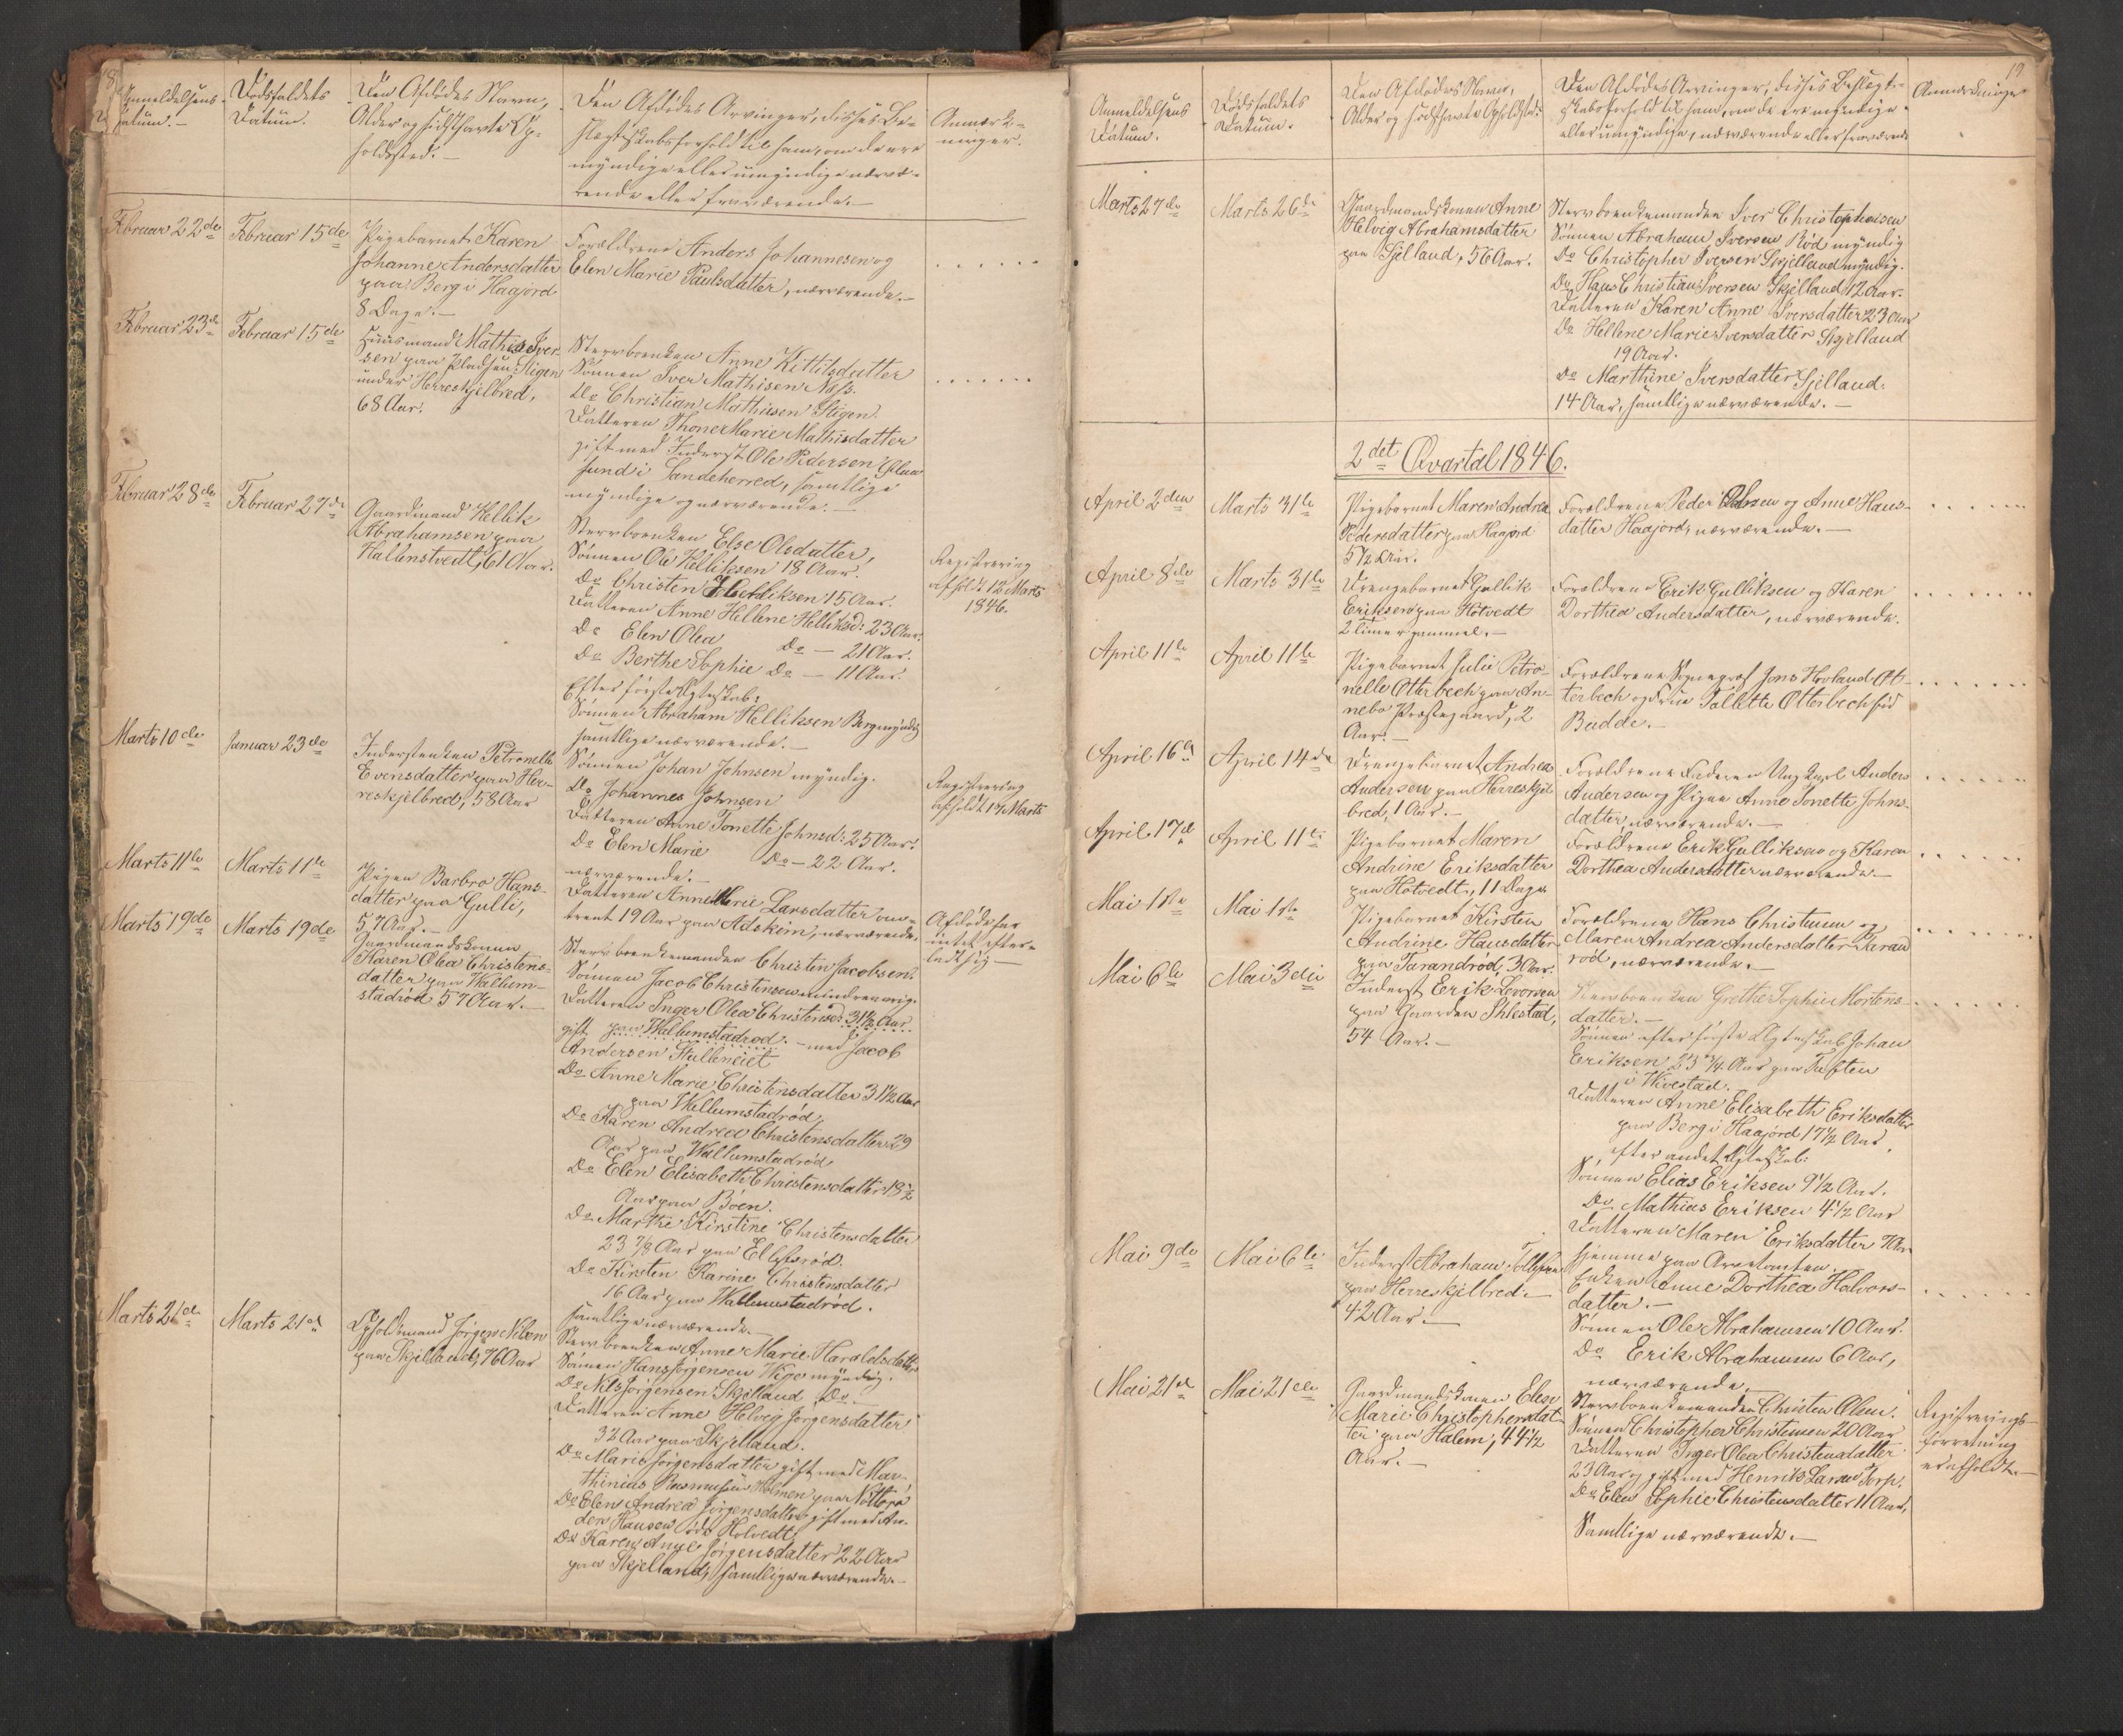 18
Anmeldelsens
Datum.-
Dødsfaldets
Datum.
Den Afdødes Navn,
Alder og sidsthavte Op-
holdssted.-
Den Afdødes Arvinger, disses Be-
slægtskabsforhold til ham, om de ere
myndige eller umyndige nærvæ-
rende eller fraværende.-
Anmærk-
ninger.
Februar 22de
Februar 15de
Pigebarnet Karen
Johanne Andersdatter
paa Berg i Haajord
8 Dage.-
Forældrene Anders Johannesen og
Elen Marie Paulsdatter, nærværende.-
Februar 23de
Februar 15de
Huusmand Mathis Iver-
sen paa Pladsen Stigen
under Herreskjelbred,
68 Aar.
Stervboenken Anne Kittilsdatter
Sønnen Iver Mathisen Næss.
Do Christian Mathisen Stigen.
Datteren Thone Marie Mathisdatter
gift med Inderst Ole Pedersen
sund i Sandeherred, samtlige
myndige og nærværende.-
Februar 28de
Februar 27de
Gaardmand Hellik
Abrahamsen paa
Hallenstvedt, 61 Aar.
Stervboenken Else Olsdatter,
Sønnen Ole Helliksen 18 Aar.
Do Christen Helliksen 15 Aar.
Datteren Anne Hellene Helliksd: 23 Aar.
Do Elen Olea Do - 21 Aar.
Do Berthe Sophie Do - 11 Aar.
Efter første Ægteskab.
Sønnen Abraham Helliksen Berg myndig
samtlige nærværende.-
Registrering
afholdt 12 Marts
1846.
Marts 10de
Januar 23de
Inderstenken Petronelle
Evensdatter paa Her-
reskjelbred, 58 Aar
Sønnen Johan Johnsen myndig.
Do Johannes Johnsen
Datteren Anne Tonette Johnsd: 25 Aar.
Do Elen Marie Do - 22 Aar.
nærværende.-
Registrering
afholdt 17 Marts
Marts 11te
Marts 11te
Pigen Barbro Hans-
datter paa Gulli,
57 Aar.-
Datteren Anne Marie Larsdatter om-
trent 19 Aar paa Adskem, nærværende.
Afdøde har
intet efter-
ladt sig-
Marts 19de
Marts 19de
Gaardmandskonen
Karen Olea Christens-
datter paa Wallum-
stadrød 57 Aar.-
Stervboenkemanden Christen Jacobsen.
Sønnen Jacob Christensen mindreaarig.
Datteren Inger Olea Christensd: 31½ Aar
gift paa Wallumstadrød.- med Jacob
Andersen Stulleneiet
Do Anne Marie Christensdatter 31½ Aar
paa Wallumstadrød,
Do Karen Andrea Christensdatter 29
Aar paa Wallumstadrød
Do Elen Elisabeth Christensdatter 18½
Aar paa Bøen.
Do Marthe Kirstine Christensdatter
23 7/8 Aar paa Ellefsrød.
Do Kirsten Karine Christensdatter
16 Aar paa Wallumstadrød.
samtlige nærværende.-
Marts 21de
Marts 21de
Opholdsmand Jørgen Nilsen
paa Skjelland, 76 Aar
Stervboenken Anne Marie Haraldsdatter
Sønnen Hans Jørgensen Wige myndig.
Do Nils Jørgensen Skjelland Do.-
Datteren Anne Helvig Jørgensdatter
32 Aar paa Skjelland.
Do Maria Jørgensdatter gift med Mar-
thinius Rasmussen Holmen paa Nøtterø
Do Elen Andrea Jørgensdatter gift med An-
ders Hansen Holvedt,
Do Karen Anne Jørgensdatter 22 Aar
paa Skjelland, samtlige nærværende.-
19
Anmeldelsens
Datum.
Dødsfaldets
Datum.
Den Afdødes Navn,
Alder og sidsthavte Opholdsted.
Den Afdødes Arvinger, disses Beslægt-
skabsforhold til ham, om de ere myndige
eller umyndige, nærværende eller fraværende
Anmærkninger
Marts 27de
Marts 26de
Gaardmandskonen Anne
Helvig Abrahamsdatter
paa Sjelland, 56 Aar.
Stervboenkemanden Iver Christophersen
Sønnen Abraham Iversen Rød myndig
Do Christopher Iversen Skjelland myndig.
Do Hans Christian Iversen Skjelland 12 Aar.
Datteren Karen Anne Iversdatter 23 Aar
Do Hellene Marie Iversdatter Skjelland
19 Aar.
Do Marthine Iversdatter Sjelland.
14 Aar, samtlige nærværende.-
2det Qvartal 1846.
April 2den
Marts 31te
Pigebarnet Maren Andrea
Pedersdatter paa Haajord
5½ Aar.
Forældrene Peder Olsen og Anne Hans-
datter Haajord, nærværende.-
April 8de
Marts 31te
Drengebarnet Gullik
Eriksen paa Hotvedt
2 timer gammel.-
Forældrene Erik Gulliksen og Karen
Dorthea Andersdatter, nærværende.
April 11te
April 11te
Pigebarnet Julie Petro-
nelle Otterbech paa An-
nebo Præstegaard, 2
Aar.-
Forældrene Sognepræst Jens Hovland Ot-
terbech og Frue Tallette Otterbech fød
Budde.-
April 16de
April 14de
Drengebarnet Andreas
Andersen paa Herreskjel-
bred, 1 Aar.-
Forældrene Faderen Ungkarl Anders
Andersen og Pigen Anne Tonette Johns-
datter nærværende.-
April 17de
April 11te
Pigebarnet Maren
Andrine Eriksdatter
paa Hotvedt, 11 Dage
Forældrene Erik Gulliksen og Karen
Dorthea Andersdatter nærværende.-
Mai 1ste
Mai 1ste
Pigebarnet Kirsten
Andrine Hansdatter
paa Tarandrød, 3 Aar.
Forældrene Hans Christensen og
Maren Andrea Andersdatter Taran
rød, nærværende.-
Mai 6te
Mai 3die
Inderst Erik Levorsen
paa Gaarden Ihlestad,
54 Aar.-
Stervboenken Grethe Sophie Mortens-
datter.-
Sønnen efter første Ægteskab Johan
Eriksen 23¾ Aar paa Tuften
i Kivestad.
Datteren Anne Elisabeth Eriksdatter
paa Berg i Haajord 17½ Aar
efter andet Ægteskab:
Sønnen Elias Eriksen 9½ Aar.
Do Mathias Eriksen 4½ Aar
Datteren Maren Eriksdatter 7 Aar
hjemme paa Arvetomten.
Mai 9de
Mai 6te
Inderst Abraham Tollefsen
paa Herreskjelbred.-
42 Aar.-
Enken Anne Dorthea Halvors-
datter.-
Sønnen Ole Abrahamsen 10 Aar.
Do Erik Abrahamsen 6 Aar,
nærværende.
Mai 21de
Mai 21de
Gaardmandskonen Elese
Marie Christophersdat-
ter paa Halem, 44½
Aar.-
Stervboenkemanden Christen Olsen.
Sønnen Christopher Christensen 20 Aar
Datteren Inger Olea Christensdatter
23 Aar og gift med Henrik Larsen Torp.
Do Elen Sophie Christensdatter 11 Aar,
Samtlige nærværende.-
Registrerings-
forretning
er afholdt.-